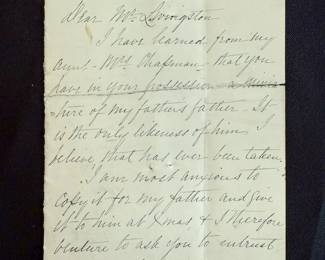 Dear Mr. Livingston
I have learned from my
aunt - Mrs. Chapman - that you
have in your possession - a minia
ture of my father's father - It
is the only likeness of him I
believe that has ever been taken.
I am most anxious to
copy it for my father and give
it to him at Xmas & I therefore
venture to ask you to entrust